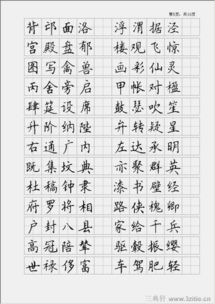 第5页，共16页
背邙面洛 浮渭据泾
宫殿盘郁 楼观飞惊
图写禽兽 画彩仙灵
丙舍旁启 甲帐对楹
肆筵设席 鼓瑟吹笙
升阶纳陛 弁转疑星
右通广内 左达承明
既集坟典 亦聚群英
杜稿钟隶 漆书壁经
府罗将相 路侠槐卿
户封八县 家给千兵
高冠陪辇 驱毂振缨
世禄侈富 车驾肥轻